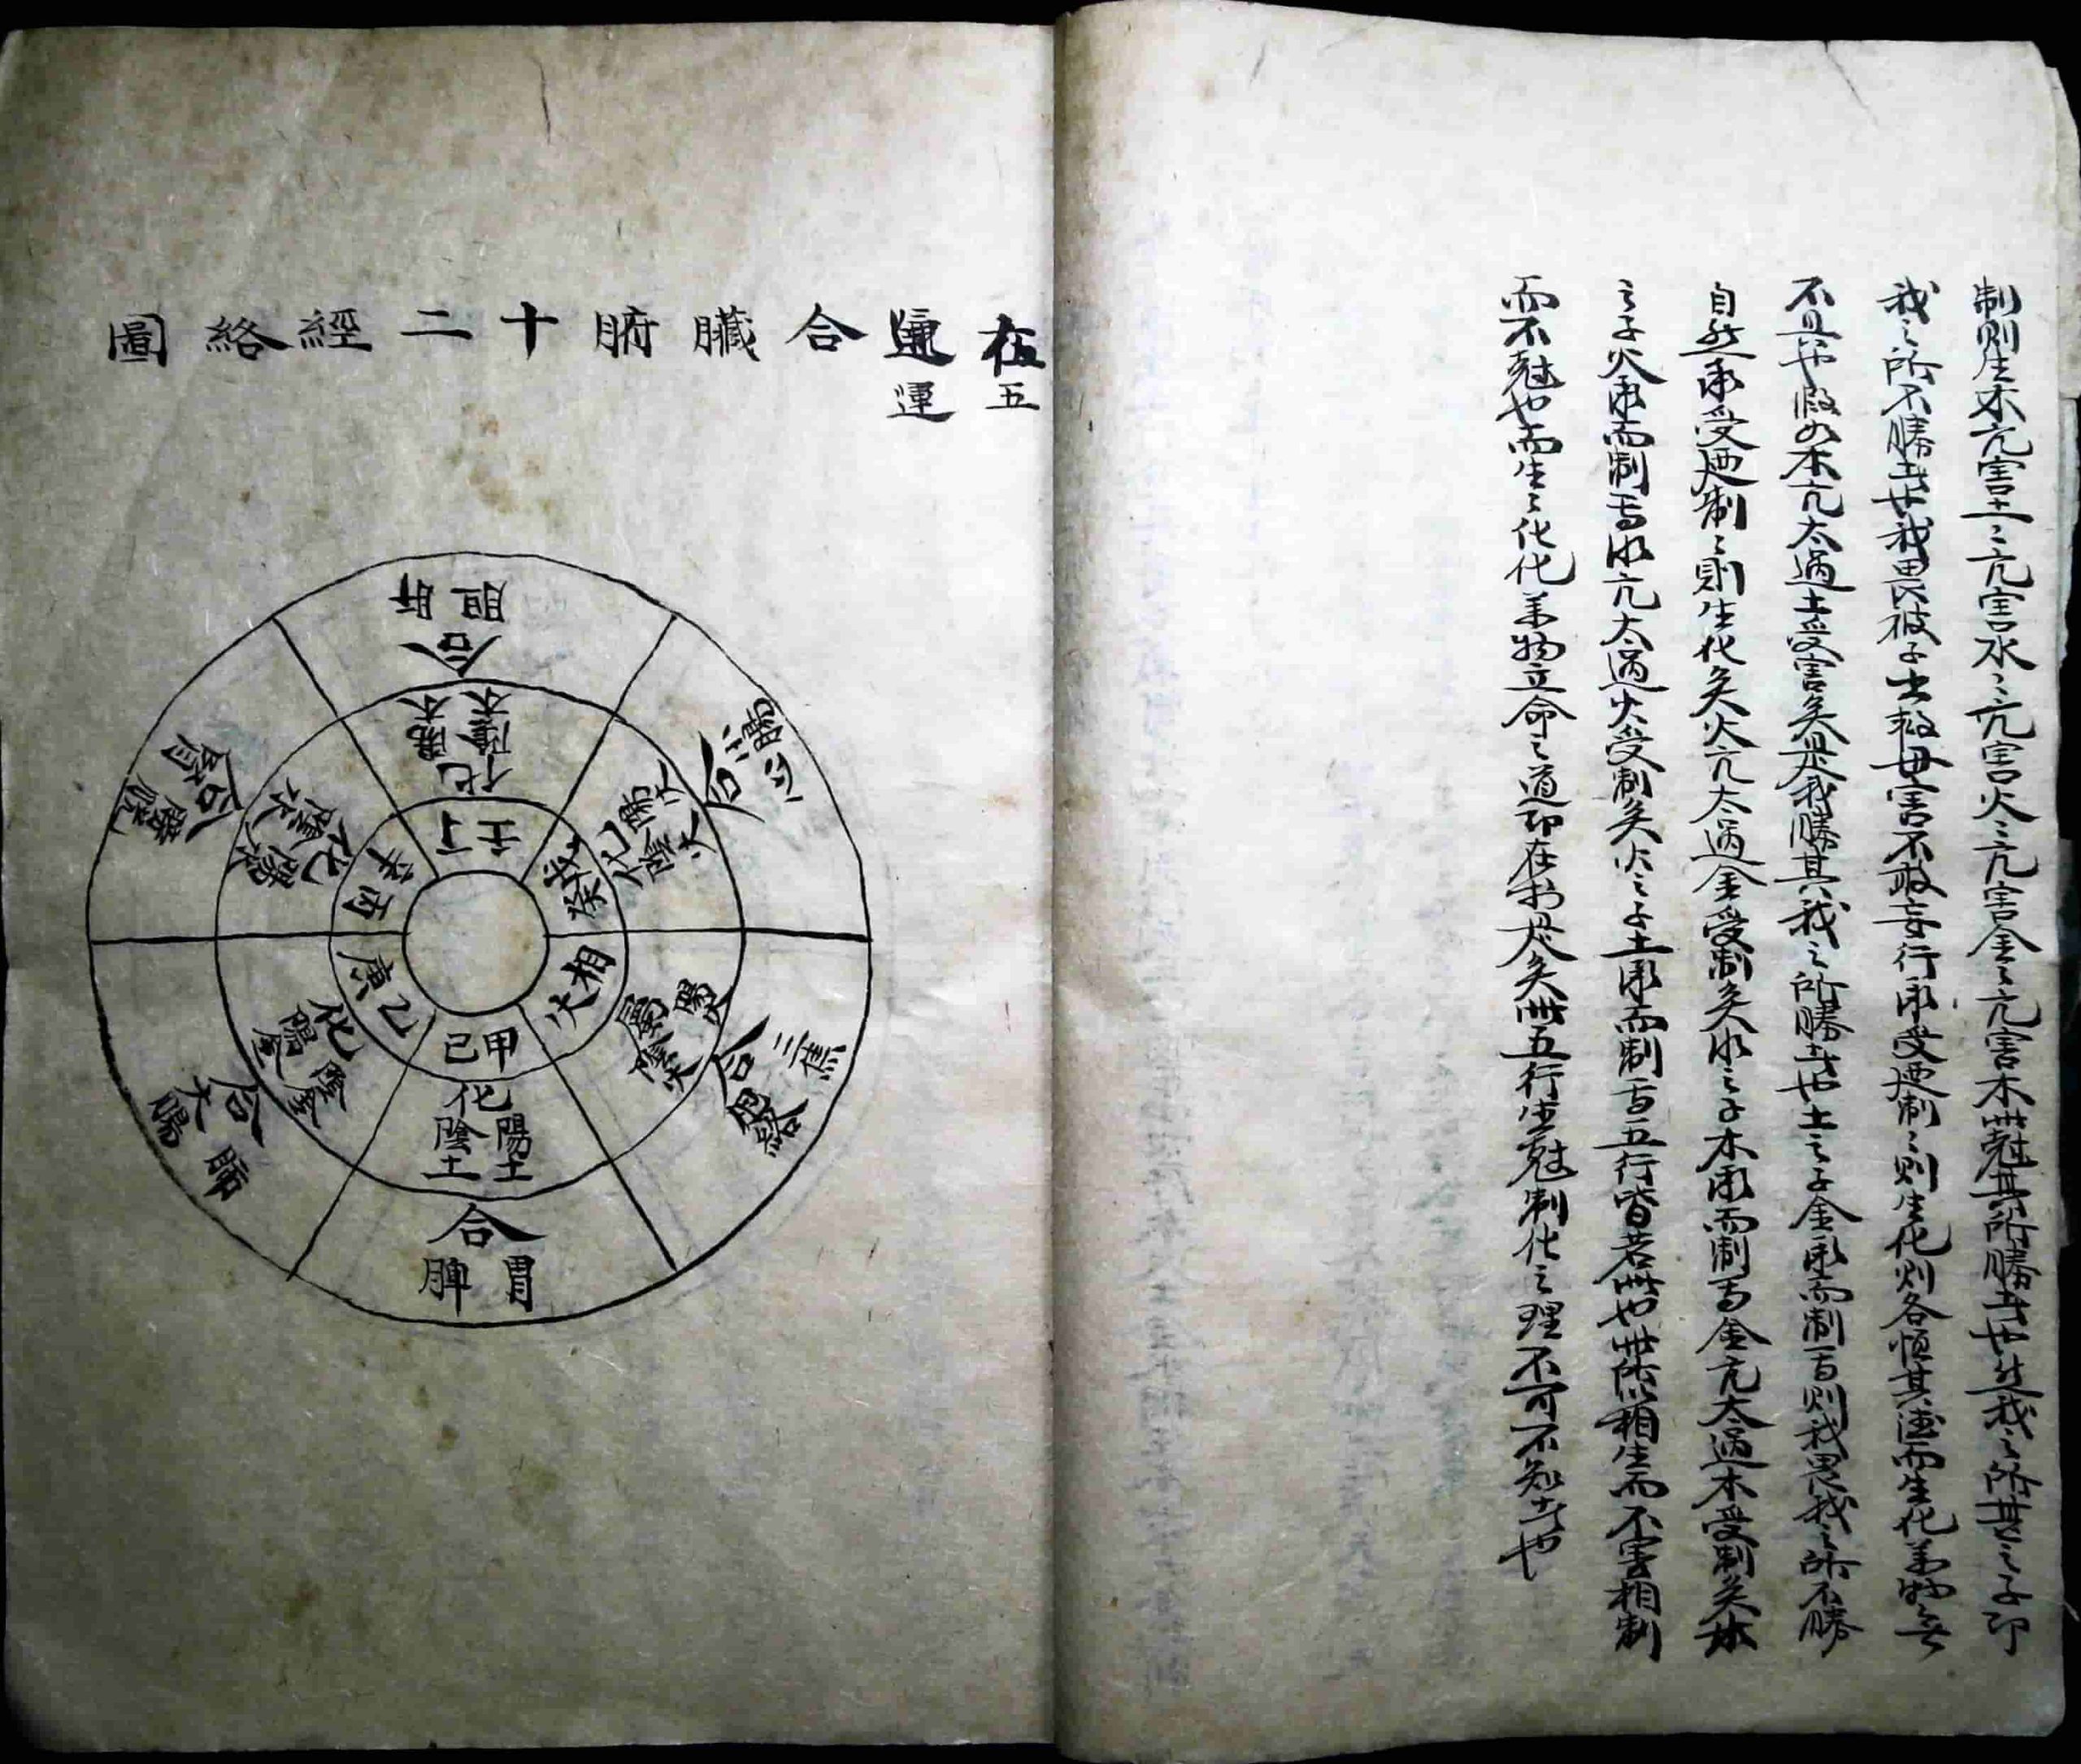 制則生木亢害土〻亢害水〻亢害火〻亢害金〻亢害木此尅其所勝者也生我之所其之子即
我之所不勝者也我畏民彼子出救母害不敢妄行承受遞制〻則生化則各恒其德而生化萬物無
不具也假如木亢太過土受害矣是我勝其我之所勝者也土之子金承而制焉則我畏我之所不勝
自然承受遞制〻則生化矣火亢太過金受制矣水之子木承而制焉金亢太過木受制矣木
之子火承而制焉水亢太過火受制矣火之子土承而制焉五行皆若此也此所以相生而不害相制
而不尅也而生〻化化萬物立命之道即在於是矣此五行生尅制化之理不可不知者也
在運合臟腑十二經絡圖
五運
膽肝
合
陰木陽木
化
壬丁
小腸心
合
陽火陰火
化
戊癸
三焦包絡
合
陽火
屬陰火
相火
胃脾
合
陽土陰土
化
甲己
肺大腸
合
陰金陽金
化
乙庚
腎膀胱
合
陰水陽水
化
辛丙